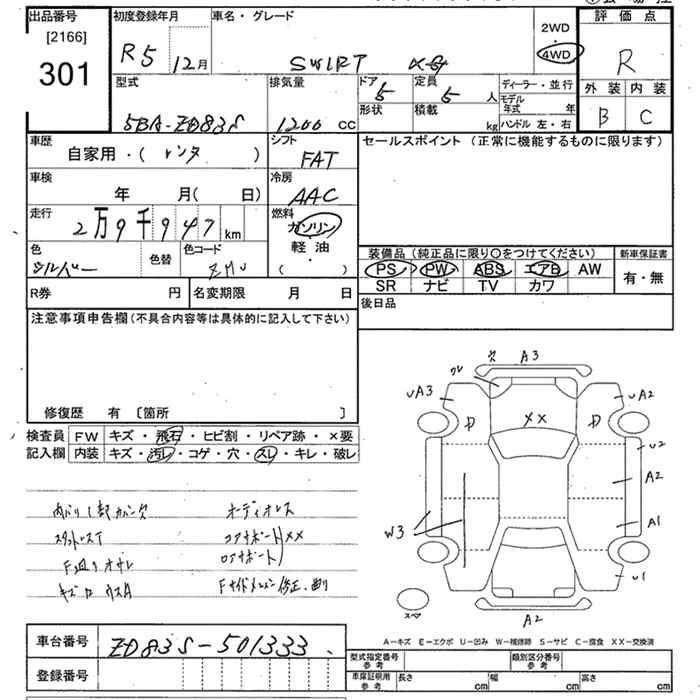 出品番号
[2166]
301
初度登録年月
R5 12月
車名・グレード
SWIFT XG
2WD
4WD
評価点
R
外装 内装
B C
型式
5BA-ZD83S
排気量
1200 CC
ドア 5
定員 5 人
形状
積載 kg
ディーラー・並行
モデル年式 年
ハンドル 左・右
車歴
自家用・( レンタ )
シフト
FAT
セールスポイント (正常に機能するものに限ります)
車検
年 月( 日)
冷房
AAC
走行
2万9千947 km
燃料
ガソリン
軽・油
( )
色
シルバー
色替
色コード
装備品 (純正品に限り○をつけてください)
新車保証書
PS PW ABS エアB AW
SR ナビ TV カワ
有・無
R券 円
名変期限 月 日
後日品
注意事項申告欄 (不具合内容等は具体的に記入して下さい)
修復歴 有 〔箇所 〕
検査員
記入欄
FW キズ・飛石・ヒビ割・リペア跡・×要
内装 キズ・汚レ・コゲ・穴・スレ・キレ・破レ
オーディオレス
スタットレスT
A3
UA3
UA2
XX
U2
A2
A1
W3
U1
A2
スペア
A-キズ E-エクボ U-凹み W-補修跡 S-サビ C-腐食 XX-交換済
車台番号
ZD83S-501333
登録番号
型式指定番号
参考
類別区分番号
参考
車庫証明用
参考
長さ cm
幅 cm
高さ cm